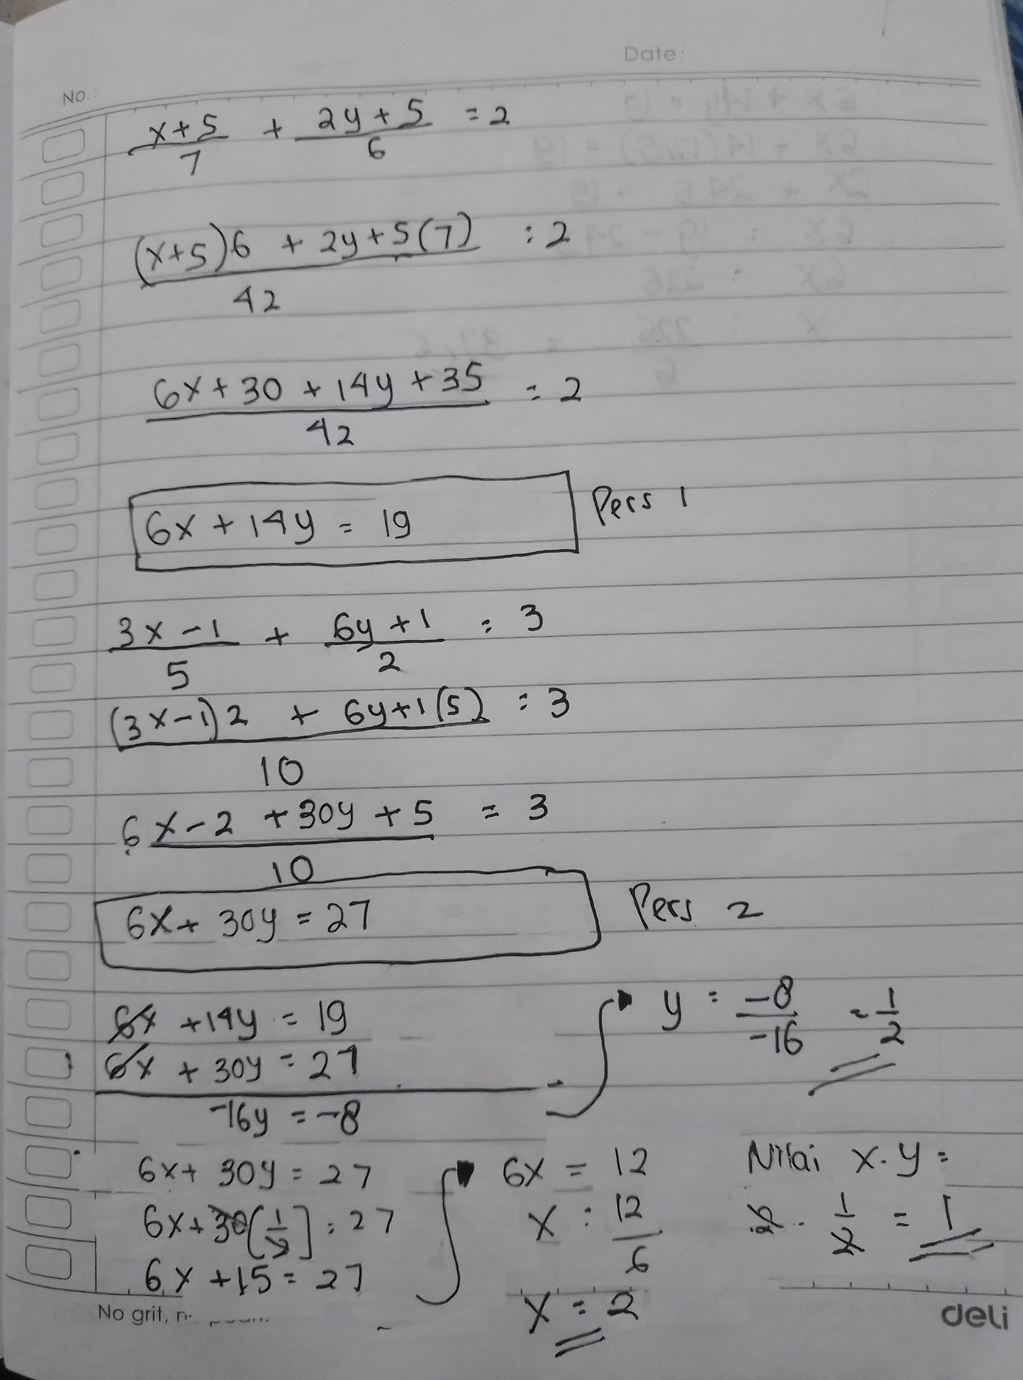 Date:
No.:
x+5/7 + 2y+5/6 = 2
(x+5)6 + 2y+5(7)/42 : 2
6x+30 + 14y + 35/42 = 2
6x + 14y = 19 Pers 1
3x-1/5 + 6y+1/2 = 3
(3x-1)2 + 6y+1(5)/10 = 3
6x-2 + 30y + 5/10 = 3
6x + 30y = 27 Pers 2
6x + 14y = 19
6x + 30y = 27
-16y = -8
y = -8/-16 = 1/2
6x + 30y = 27
6x + 30(1/2) = 27
6x + 15 = 27
6x = 12
x : 12/6
x = 2
Nilai x.y =
2 . 1/2 = 1
No grit, n
deli